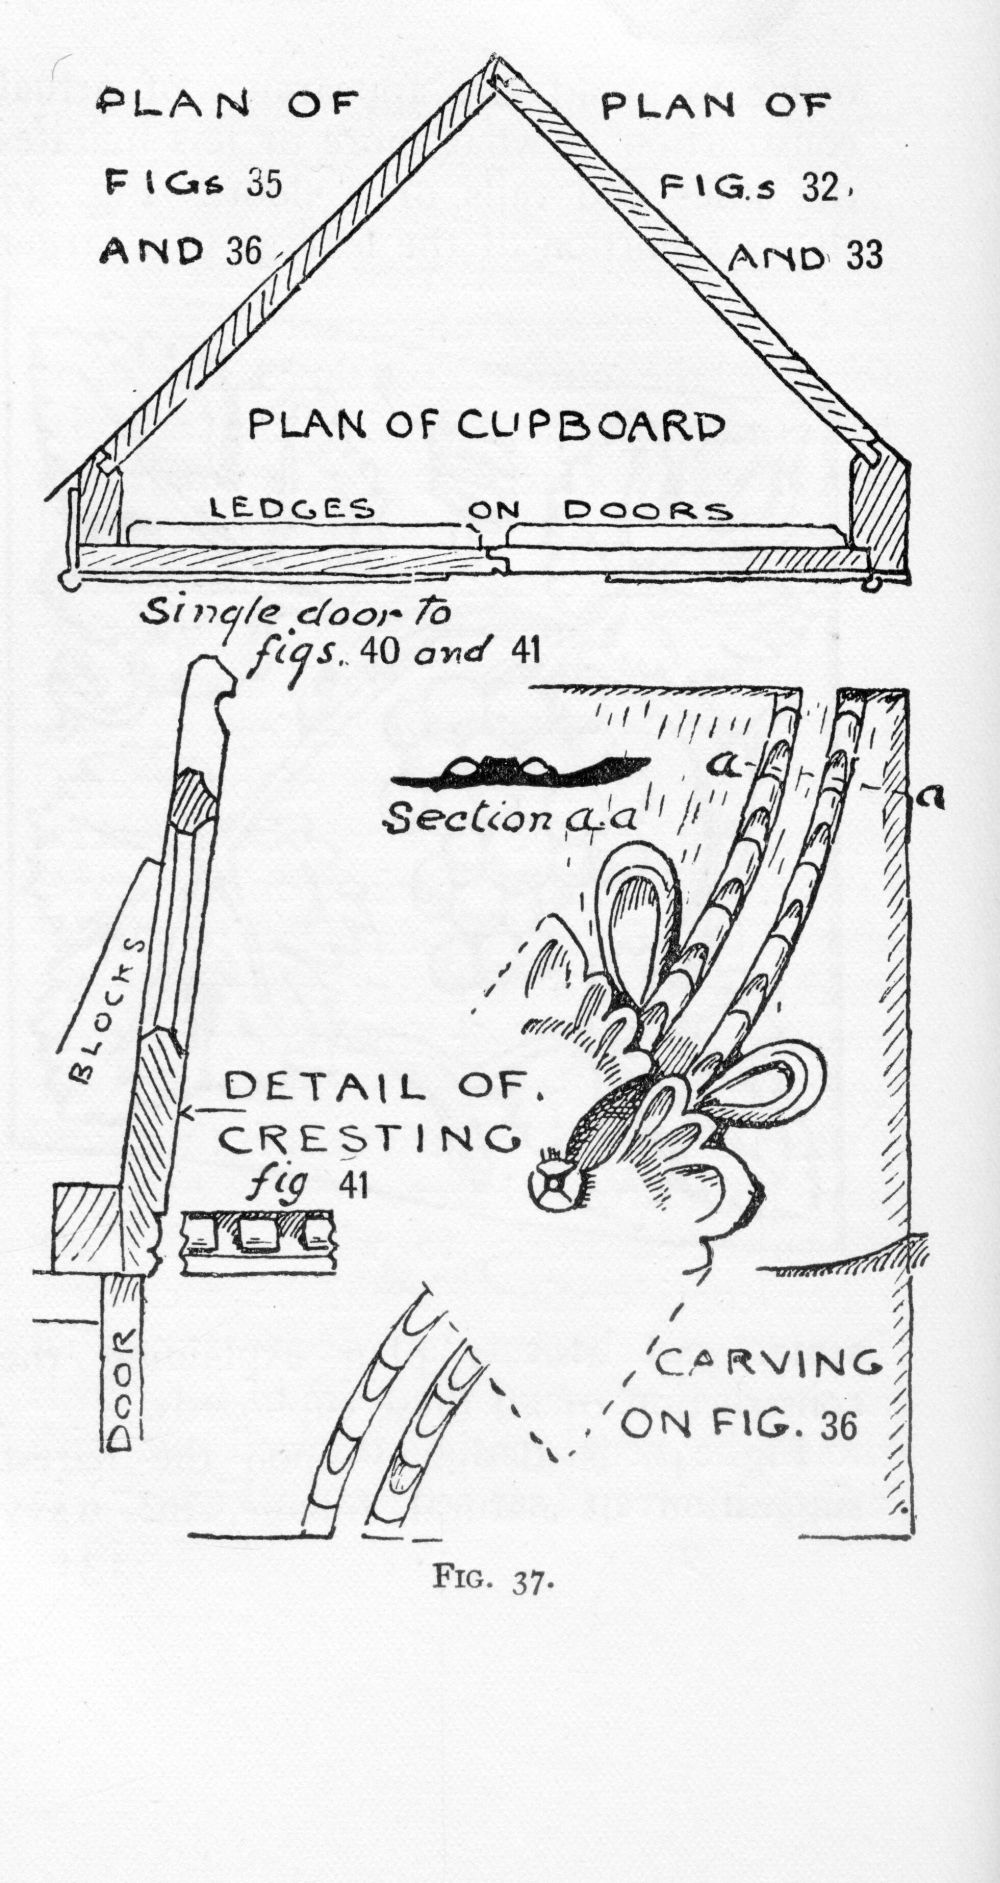 PLAN OF
FIGs 35
AND 36
PLAN OF
FIG.s 32,
AND 33
PLAN OF CUPBOARD
LEDGES ON DOORS
Single door to
figs. 40 and 41
a
a
Section a.a
BLOCKS
DETAIL OF.
CRESTING
fig 41
DOOR
CARVING
ON FIG. 36
FIG. 37.